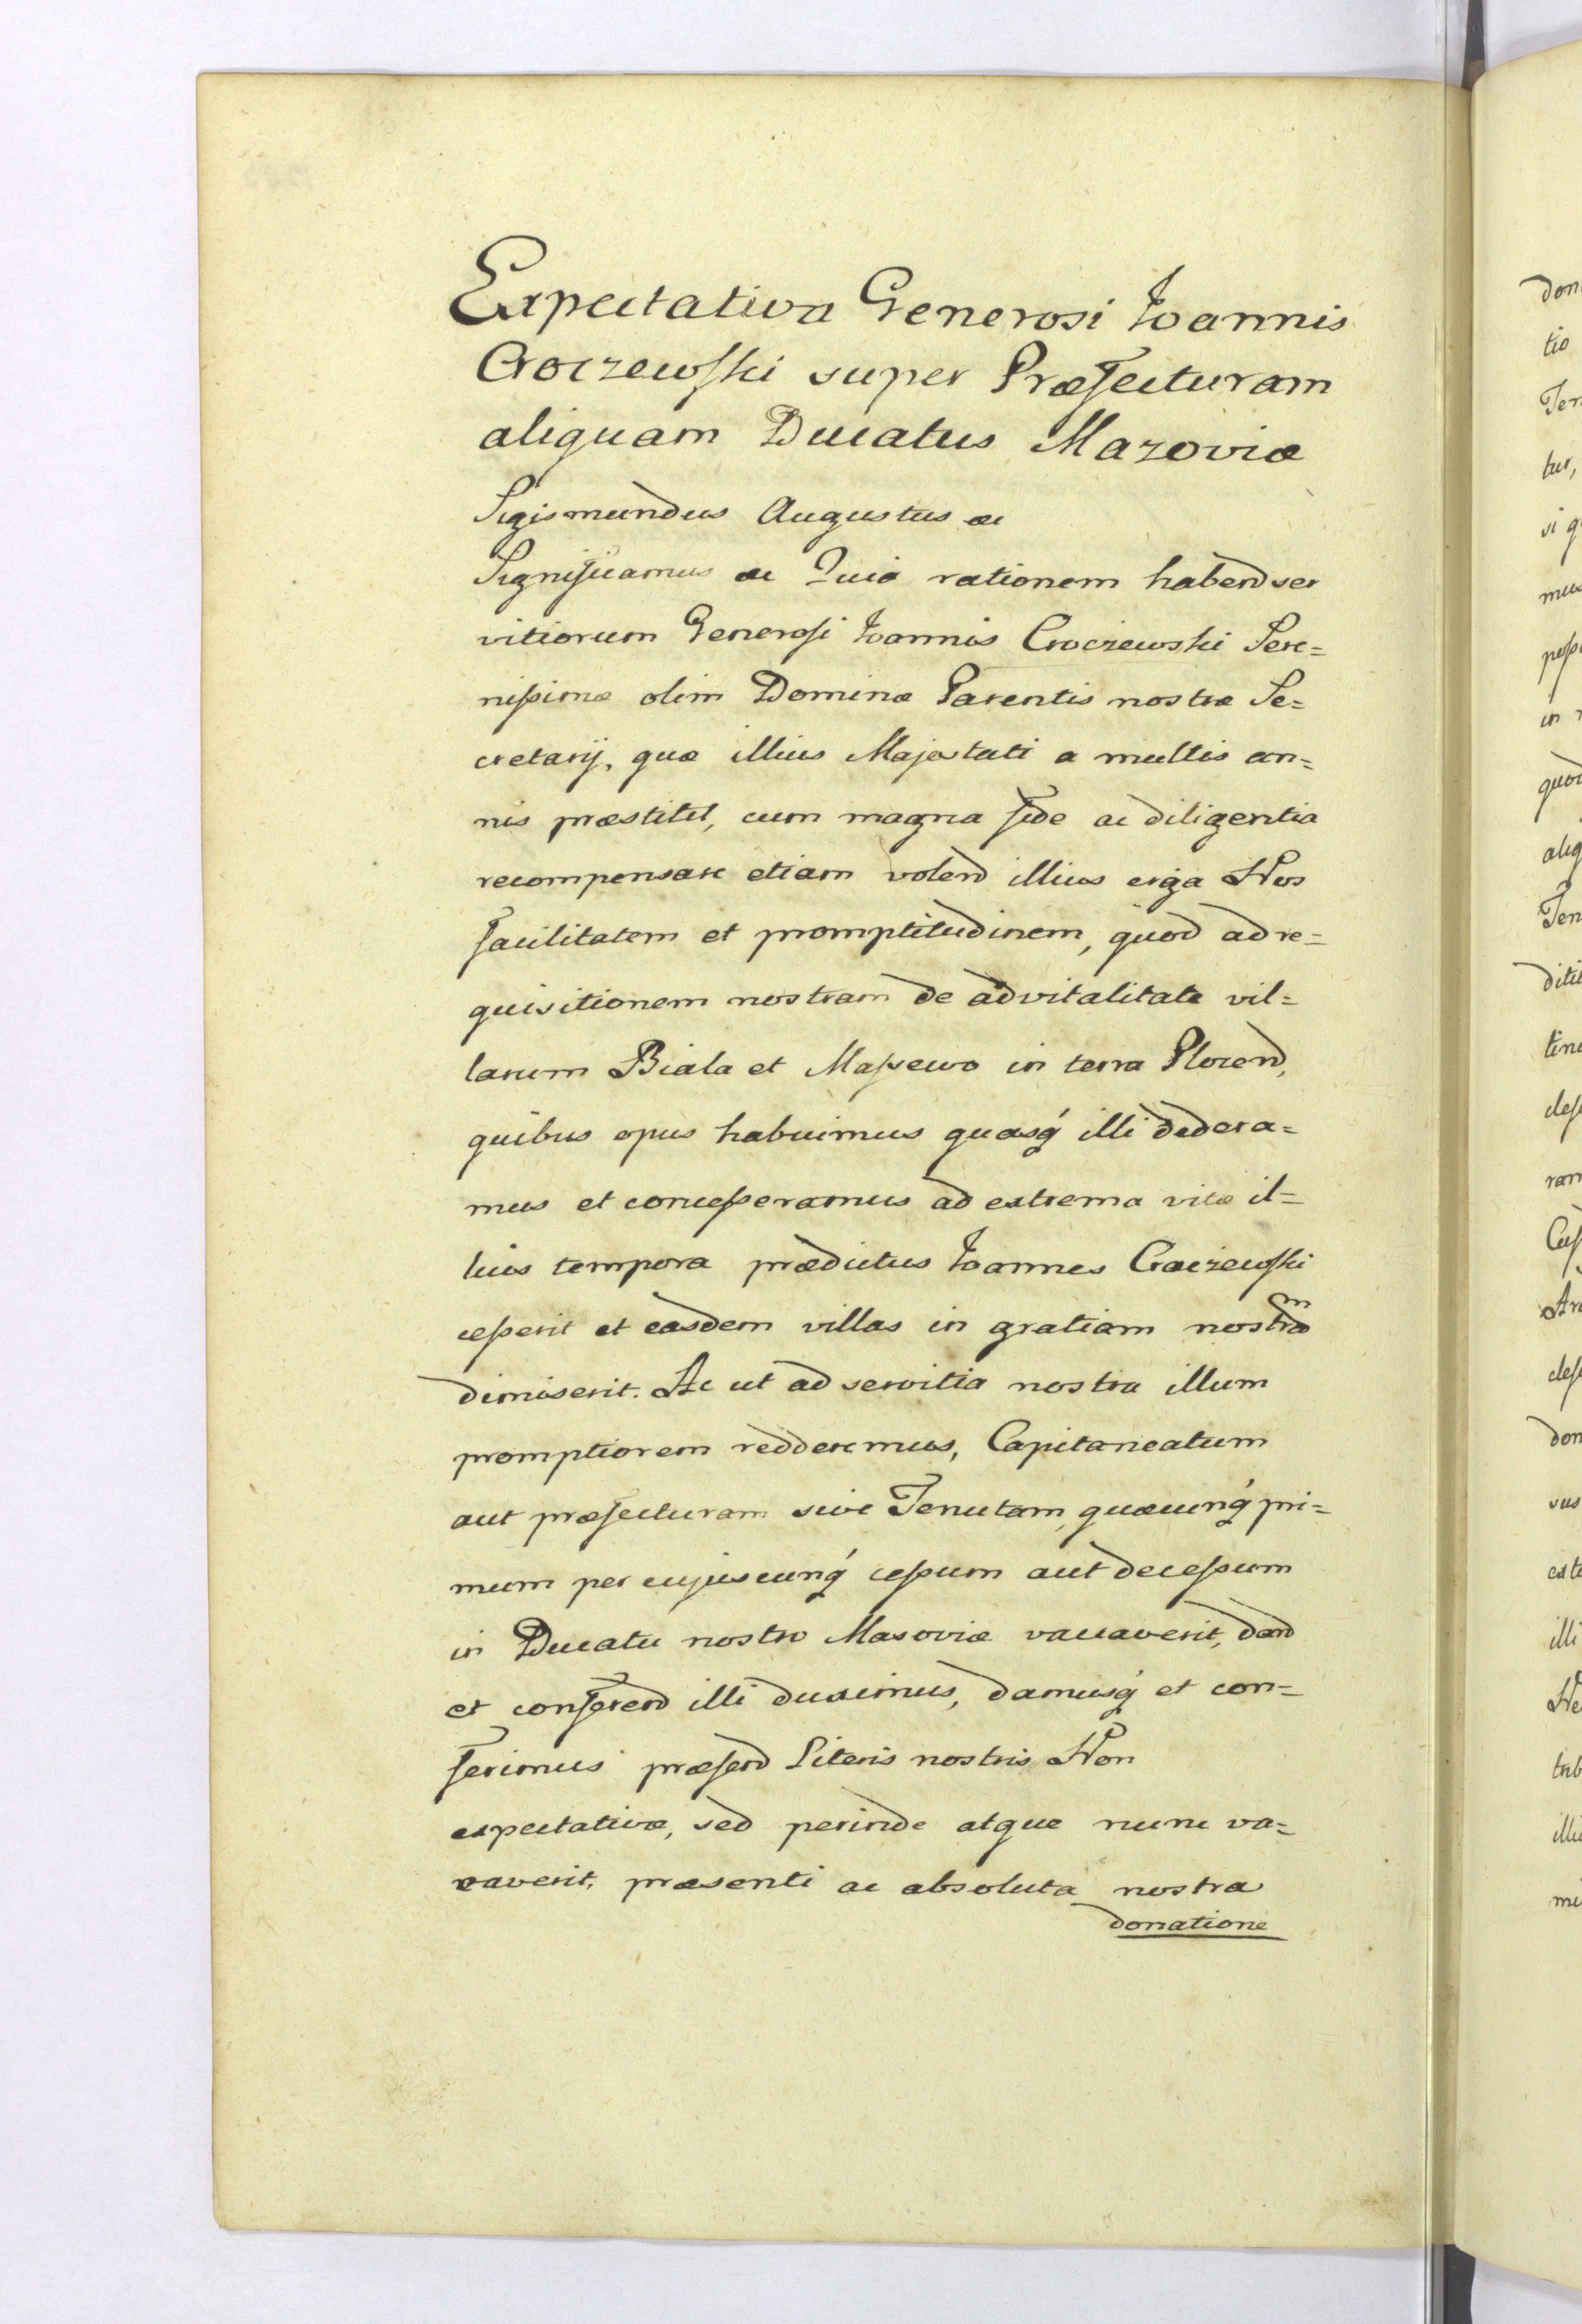 Expectativa Generosi Joannis
Croczewski super Præfecturam
aliquam Ducatus Mazoviæ
Sigismundus Augustus ac
Significamus ac Quia rationem habend ser
vitiorum Generosi Joannis Croczewski Sere=
nissimæ olim Dominæ Parentis nostræ Se=
cretarij, quæ illius Majestati a multis an=
nis præstitit, cum magna fide ac diligentia
recompensare etiam volend illius erga Nos
facilitatem et promptitudinem, quod ad re=
quisitionem nostram de advitalitate vil=
larum Biala et Massewo in terra Plocend,
quibus opus habuimus quasq́ illi dedera=
mus et concesseramus ad extrema vitæ il=
lius tempora prædictus Joannes Croczewski
cesserit et easdem villas in gratiam nostram
dimiserit. Ac ut ad servitia nostra illum
promptiorem redderemus, Capitaneatum
aut præfecturam sive Tenutam, quæcunq́ pri=
mum per cujuscunq́ cessum aut decessum
in Ducatu nostro Masoviæ vacaverit, dand
et conferend illi duximus, damusq́ et con=
ferimus præsend Literis nostris Non
expectativæ, sed perinde atque nunc va=
caverit, præsenti ac absoluta nostra
donatione
don
tio
Ten
tur,
si q
mus
posse
in
quod
aliq
Ten
ditit
tine
cless
ram
Cuf
Ar
cless
don
sus
exte
illi
Ne
trib
illiu
mi